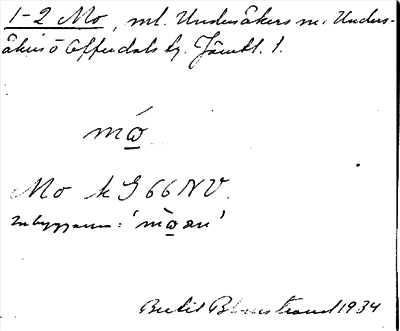 1-2 Mo, ml. Undersåkers sn. i Unders-
åkers o Offerdals tg. Jämtl. l.
mώ̲
Mo k G 66 NV.
Inbyggarna: 'mὼ̲an'
Bertil Blomstrand 1934